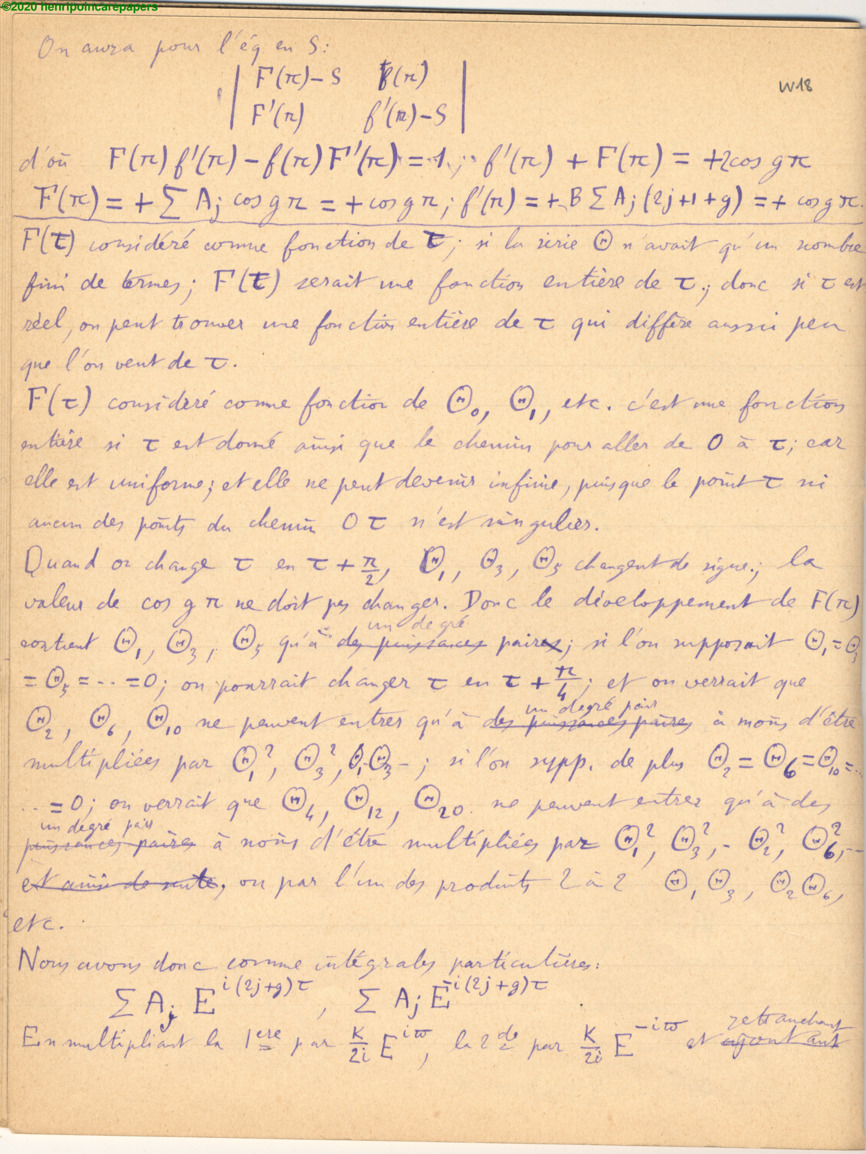 ©2020 henripoincarepapers
W18
On aura pour l'éq en S:
| F(π) – S   f(π) |
| F'(π)   f'(π) – S |
d'où F(π) f'(π) – f(π) F'(π) = 1; f'(π) + F(π) = +2cos gπ
F(π) = + Σ Aj cos gπ = + cos gπ; f'(π) = + B Σ Aj (2j+1+g) = + cos gπ.
F(τ) considéré comme fonction de τ; si la série Θ n'avait qu'un nombre
fini de termes; F(τ) serait une fonction entière de τ; donc si τ est
réel, on peut trouver une fonction entière de τ qui diffère aussi peu
que l'on veut de τ.
F(τ) considéré comme fonction de Θ₀, Θ₁, etc. c'est une fonction
entière si τ est donné ainsi que le chemin pour aller de 0 à τ; car
elle est uniforme; et elle ne peut devenir infinie, puisque le point τ ni
aucun des points du chemin 0τ n'est singulier.
Quand on change τ en τ + π/2, Θ₁, Θ₃, Θ₅ changent de signe; la
valeur de cos gπ ne doit pas changer. Donc le développement de F(π)
contient Θ₁, Θ₃, Θ₅ qu'à un degré des puissances paires; si l'on supposait Θ₁=Θ₃
= Θ₅ = ... = 0; on pourrait changer τ en τ + π/4; et on verrait que
Θ₂, Θ₆, Θ₁₀ ne peuvent entrer qu'à un degré pair des puissances paires à moins d'être
multipliées par Θ₁², Θ₃², Θ₁Θ₃ –; si l'on supp. de plus Θ₂ = Θ₆ = Θ₁₀ = ...
... = 0; on verrait que Θ₄, Θ₁₂, Θ₂₀ ne peuvent entrer qu'à des
un degré pair
puissances paires à moins d'être multipliées par Θ₁², Θ₃², – Θ₂², Θ₆², –
et ainsi de suite, ou par l'un des produits 2 à 2 Θ₁Θ₃, Θ₂Θ₆,
etc.
Nous avons donc comme intégrales particulières:
Σ Aj E^{i(2j+g)τ}, Σ Aj E^{-i(2j+g)τ}.
En multipliant la 1ère par K/2i E^{iϖ}, la 2de par K/2i E^{-iϖ} et retranchant ajoutant